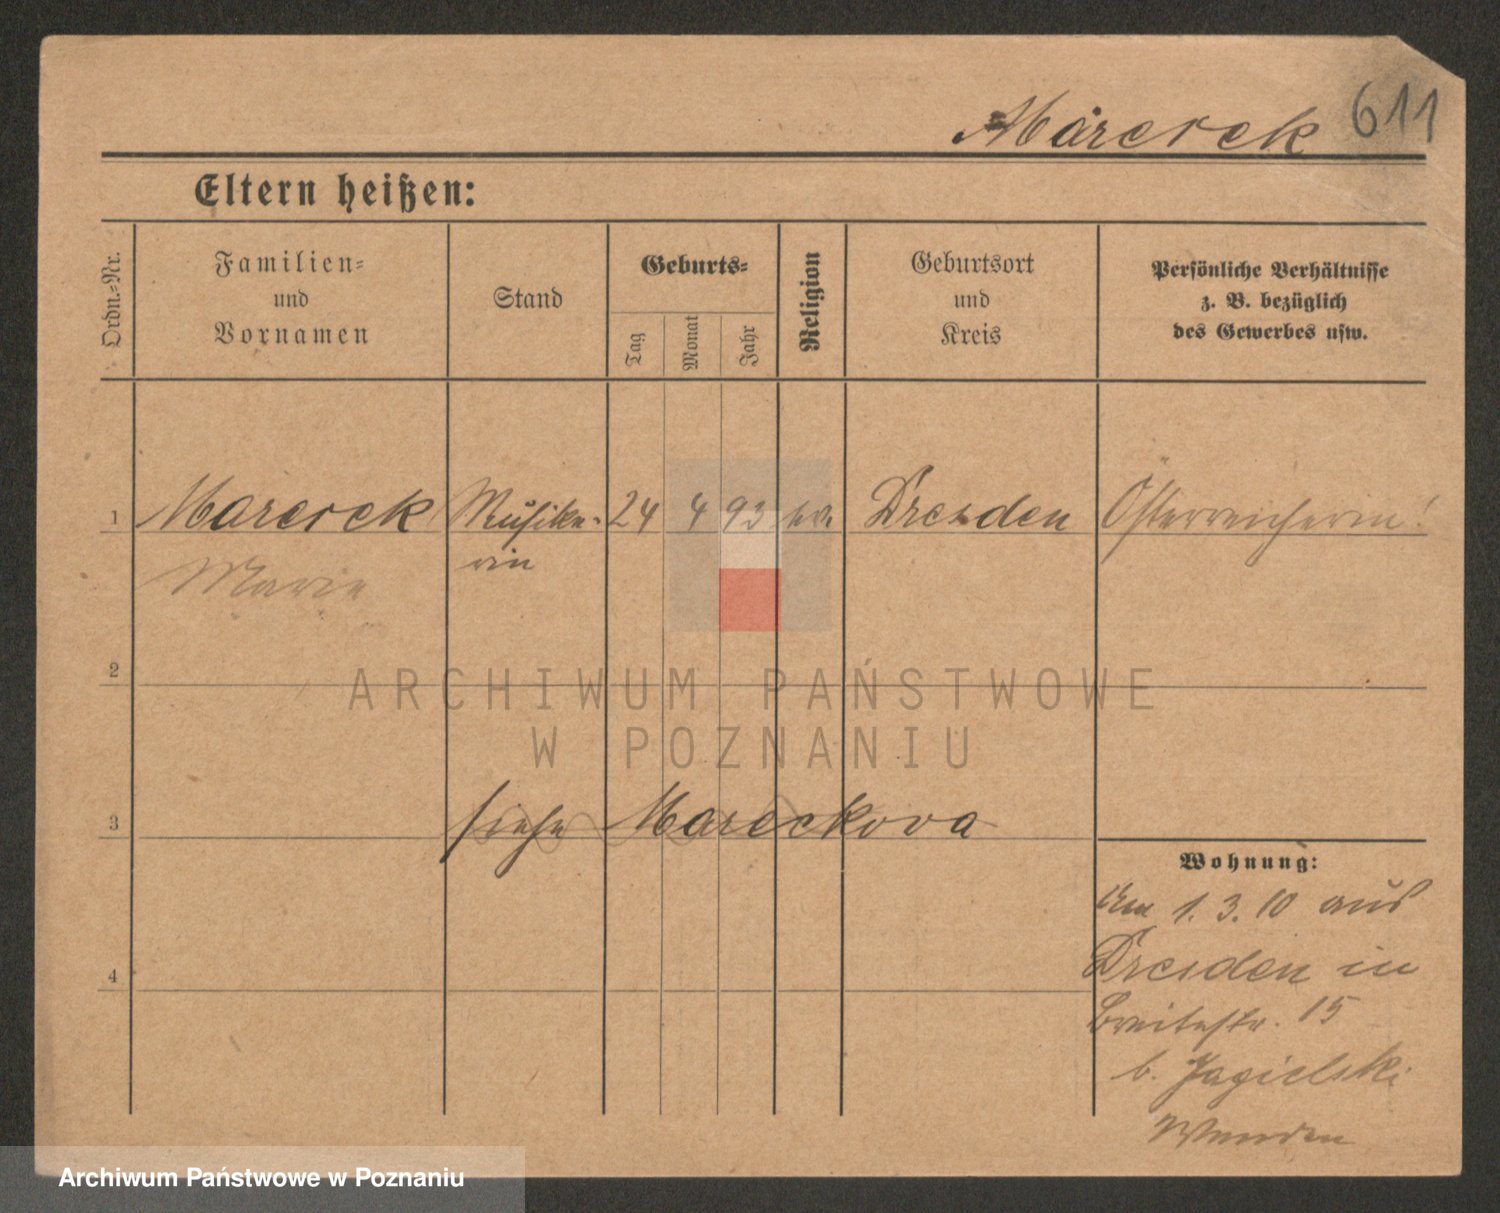 Marecek 611
Eltern heißen:
Ordn.-Nr.
Familien-
und
Vornamen
Stand
Geburts-
Tag
Monat
Jahr
Religion
Geburtsort
und
Kreis
Persönliche Verhältnisse
z. B. bezüglich
des Gewerbes usw.
1 Marecek Musike- 24 4 93 Dresden Österreicherin!
Marie rin
2
ARCHIWUM PAŃSTWOWE
W POZNANIU
3 siehe Mareckova
Wohnung:
1. 3. 10 aus
Dresden in
Breitestr. 15
b. Jagielski
4
Archiwum Państwowe w Poznaniu